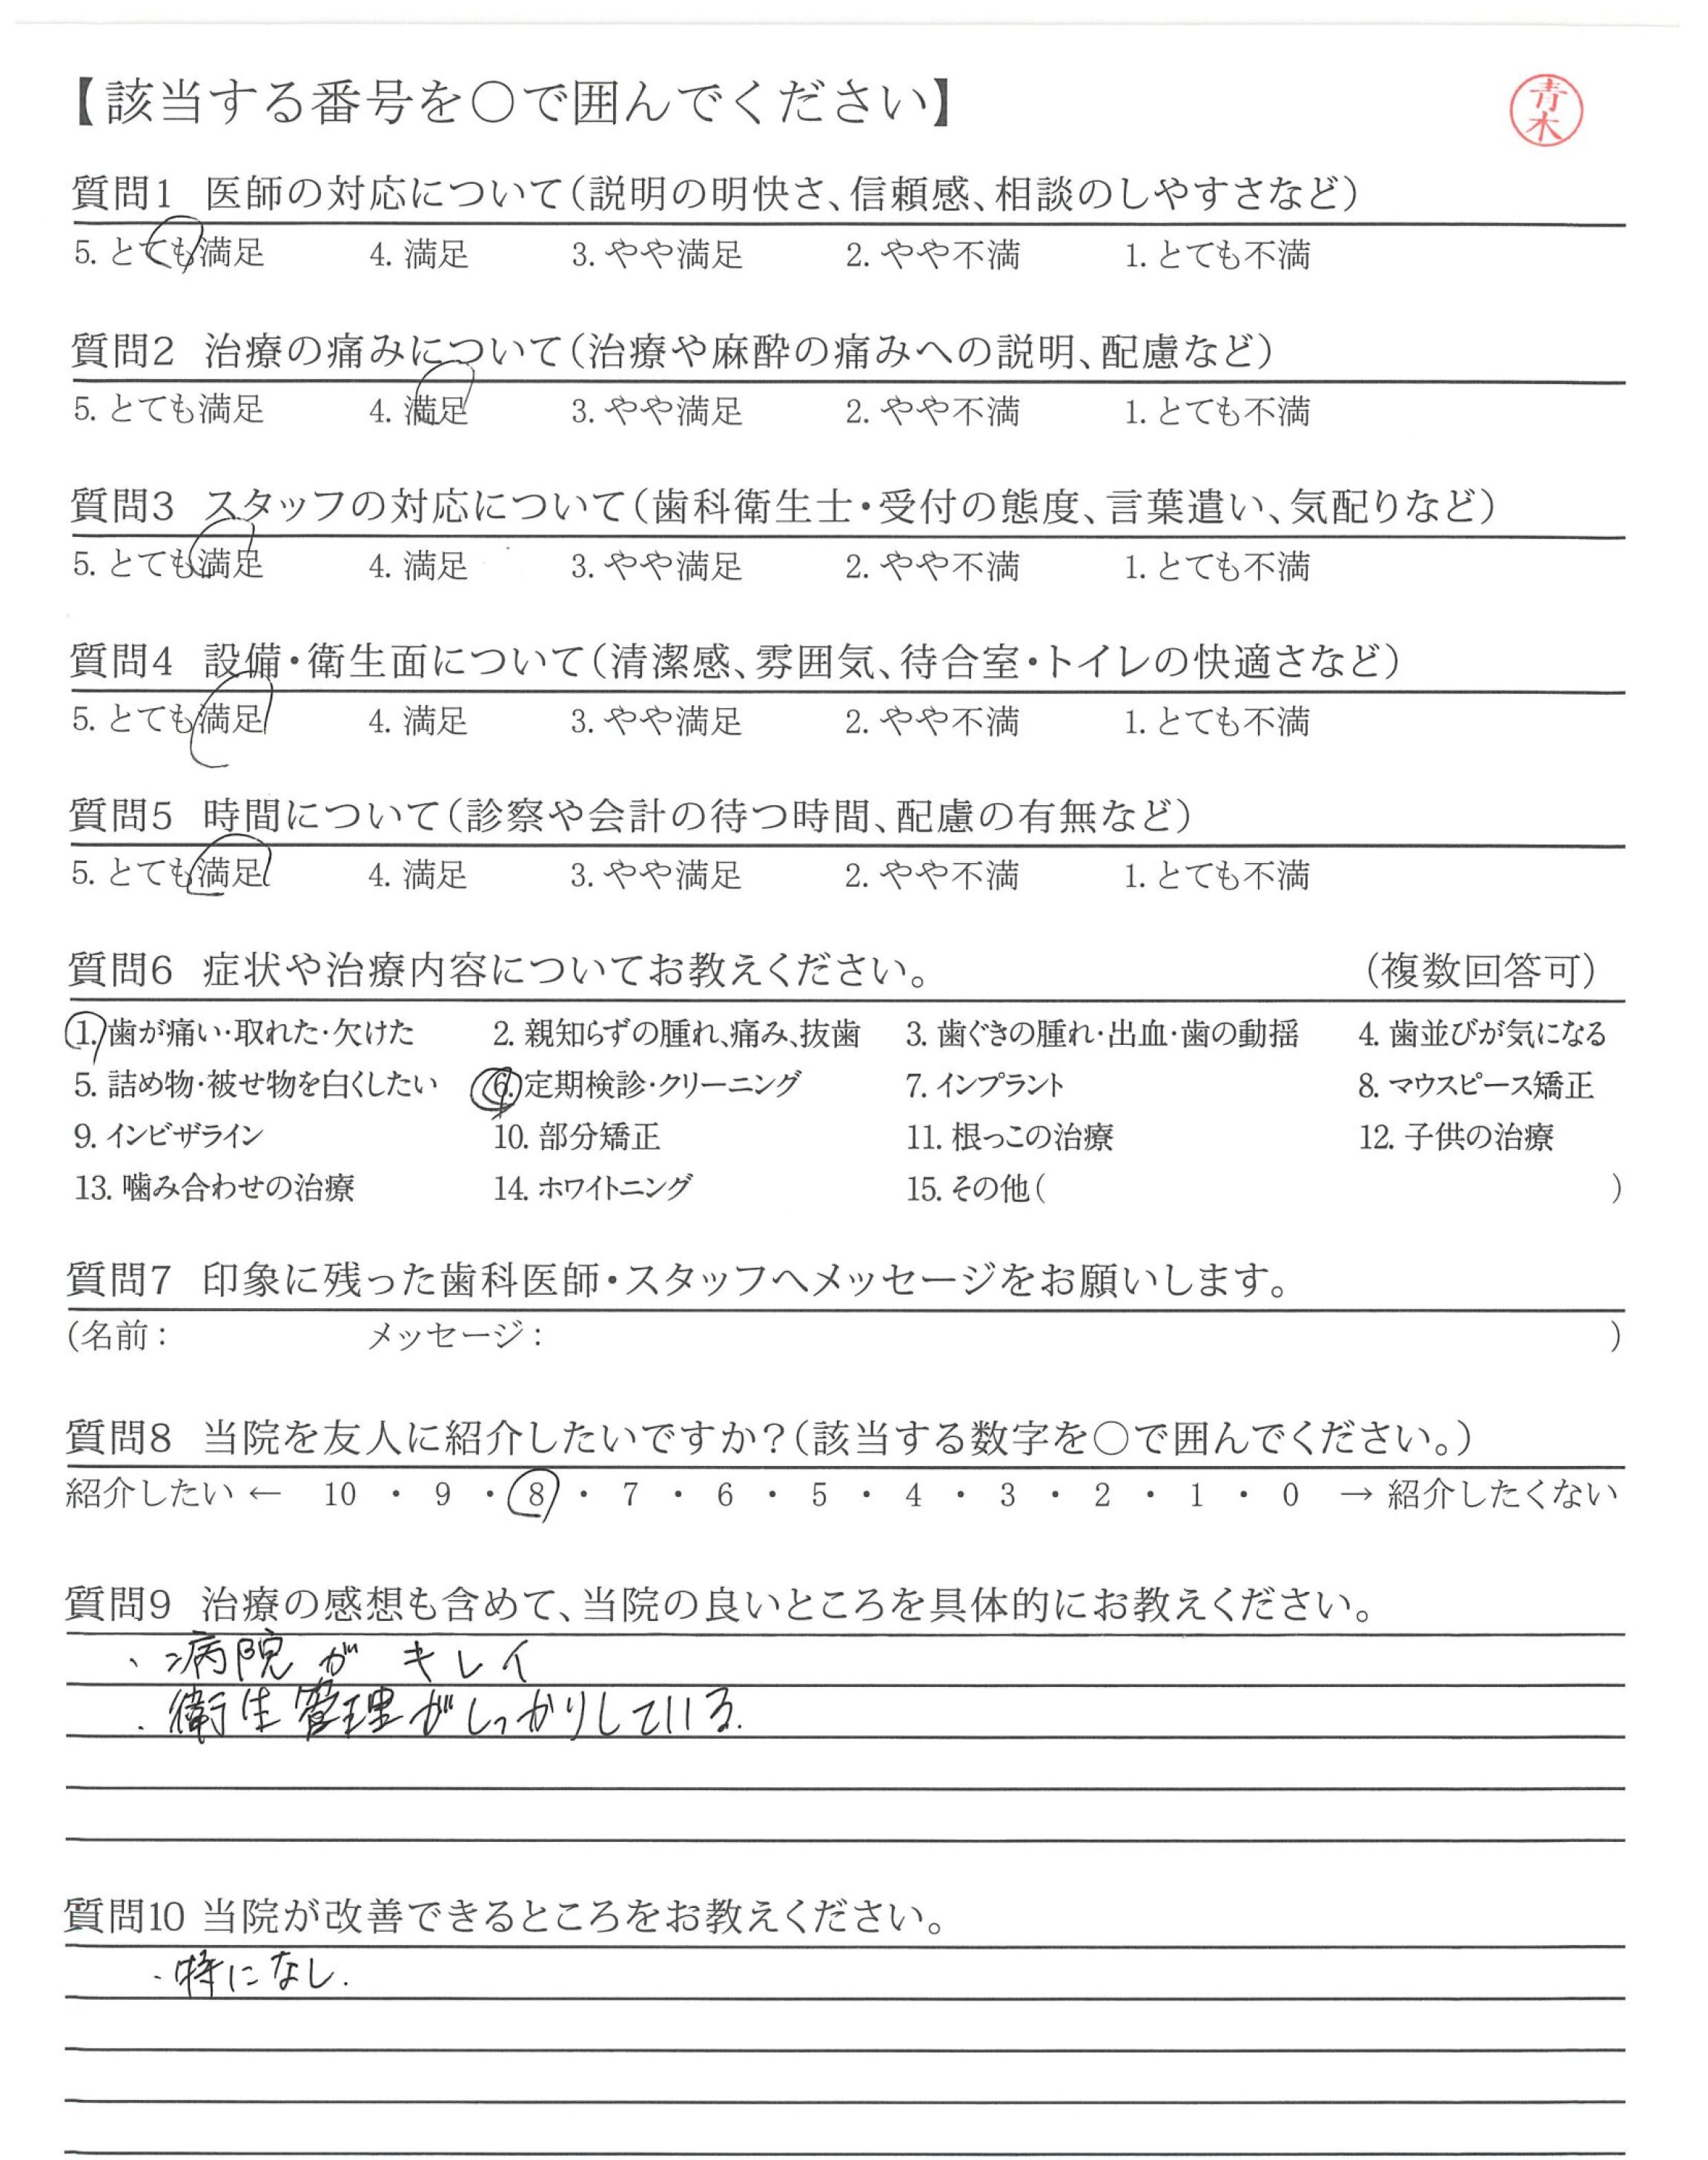 【該当する番号を〇で囲んでください】
青木
質問1 医師の対応について（説明の明快さ、信頼感、相談のしやすさなど）
5. とても満足 4. 満足 3. やや満足 2. やや不満 1. とても不満
質問2 治療の痛みについて（治療や麻酔の痛みへの説明、配慮など）
5. とても満足 4. 満足 3. やや満足 2. やや不満 1. とても不満
質問3 スタッフの対応について（歯科衛生士・受付の態度、言葉遣い、気配りなど）
5. とても満足 4. 満足 3. やや満足 2. やや不満 1. とても不満
質問4 設備・衛生面について（清潔感、雰囲気、待合室・トイレの快適さなど）
5. とても満足 4. 満足 3. やや満足 2. やや不満 1. とても不満
質問5 時間について（診察や会計の待つ時間、配慮の有無など）
5. とても満足 4. 満足 3. やや満足 2. やや不満 1. とても不満
質問6 症状や治療内容についてお教えください。 （複数回答可）
1. 歯が痛い・取れた・欠けた 2. 親知らずの腫れ、痛み、抜歯 3. 歯ぐきの腫れ・出血・歯の動揺 4. 歯並びが気になる
5. 詰め物・被せ物を白くしたい 6. 定期検診・クリーニング 7. インプラント 8. マウスピース矯正
9. インビザライン 10. 部分矯正 11. 根っこの治療 12. 子供の治療
13. 噛み合わせの治療 14. ホワイトニング 15. その他（ ）
質問7 印象に残った歯科医師・スタッフへメッセージをお願いします。
（名前： メッセージ： ）
質問8 当院を友人に紹介したいですか？（該当する数字を〇で囲んでください。）
紹介したい ← 10 ・ 9 ・ 8 ・ 7 ・ 6 ・ 5 ・ 4 ・ 3 ・ 2 ・ 1 ・ 0 → 紹介したくない
質問9 治療の感想も含めて、当院の良いところを具体的にお教えください。
・病院が キレイ
・衛生管理がしっかりしている.
質問10 当院が改善できるところをお教えください。
・特になし.